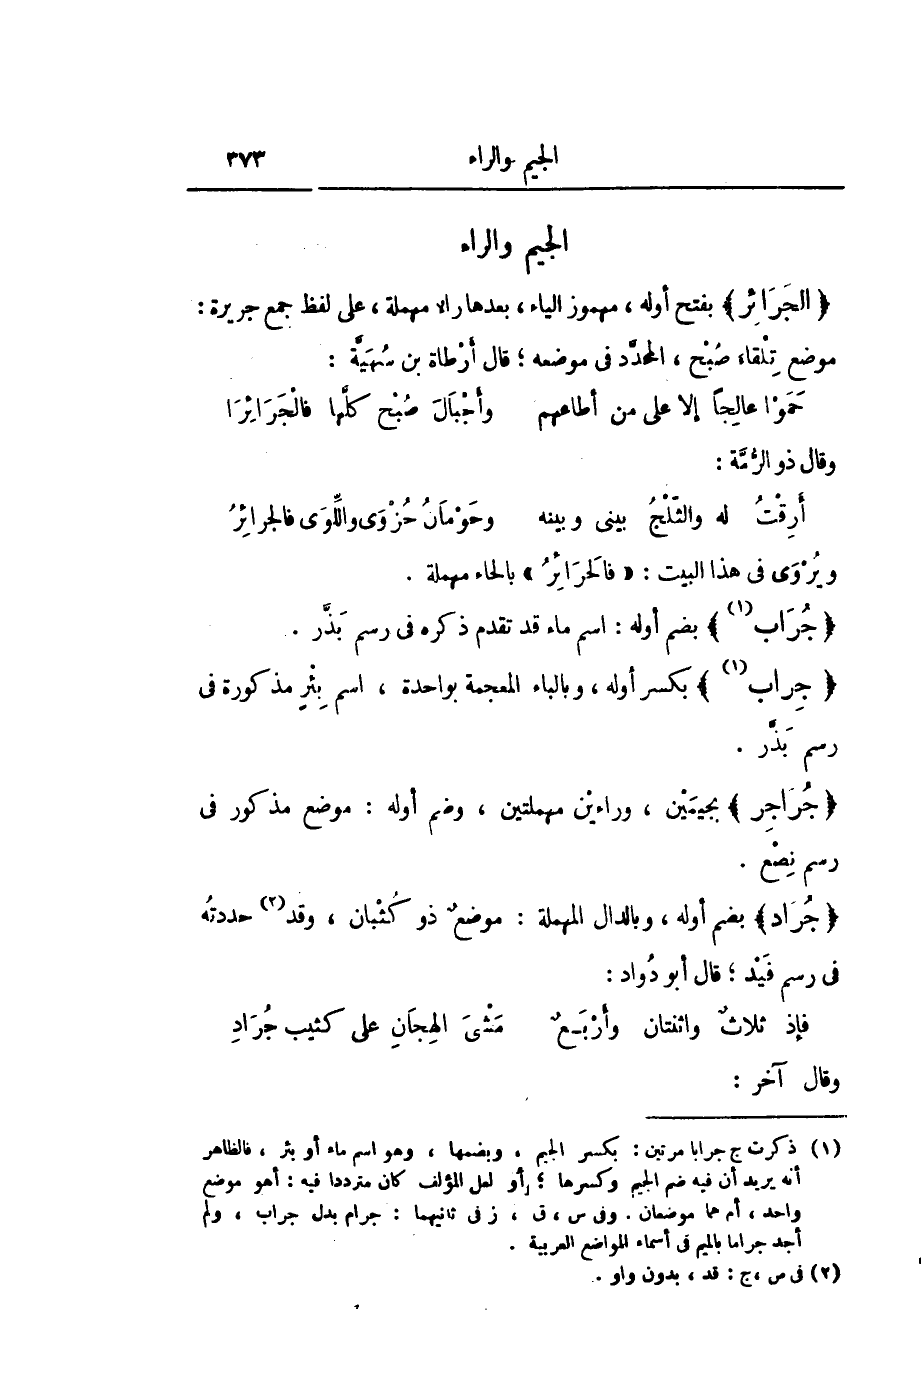 الجيم والراء ٣٧٣
الجيم والراء
﴿ الجَرَائِر ﴾ بفتح أوله ، مهموز الياء ، بعدها راء مهملة ، على لفظ جمع جريرة :
موضع تِلْقاء صُبْح ، المحدَّد فى موضعه ؛ قال أَرْطاة بن سُهَيَّة :
حَمَوْا عالِجاً إلا على من أطاعهم وأَجْبَالَ صُبْح كلَّها فالْجَرَائِرَا
وقال ذو الرُّمَّة :
أَرِقْتُ له والثَّلْجُ بينى وبينه وحَوْمَانُ حُزْوَى واللِّوَى فالجرائرُ
ويُرْوَى فى هذا البيت : « فالَحرَائِرُ » بالحاء مهملة .
﴿ جُرَاب (١) ﴾ بضم أوله : اسم ماء قد تقدم ذكره فى رسم بَذَّر .
﴿ جِراب (١) ﴾ بكسر أوله ، وبالباء المعجمة بواحدة ، اسم بِئْرٍ مذكورة فى
رسم بَذَّر .
﴿ جُرَاجِر ﴾ بجيمَيْن ، وراءيْن مهملتين ، وضم أوله : موضع مذكور فى
رسم نِصْع .
﴿ جُرَاد ﴾ بضم أوله ، وبالدال المهملة : موضعٌ ذو كُثْبان ، وقد (٢) حددتُه
فى رسم فَيْد ؛ قال أبو دُواد :
فإذ ثلاثٌ واثنتان وأَرْبَعٌ مَثْنَى الهِجَانِ على كثيب جُرَادِ
وقال آخر :
(١) ذكرت ج جرابا مرتين : بكسر الجيم ، وبضمها ، وهو اسم ماء أو بئر ، فالظاهر
أنه يريد أن فيه ضم الجيم وكسرها ؛ أو لعل المؤلف كان مترددا فيه : أهو موضع
واحد ، أم هما موضعان . وفى س ، ق ، ز فى ثانيهما : جرام بدل جراب ، ولم
أجد جراما بالميم فى أسماء المواضع العربية .
(٢) فى س ، ج : قد ، بدون واو .